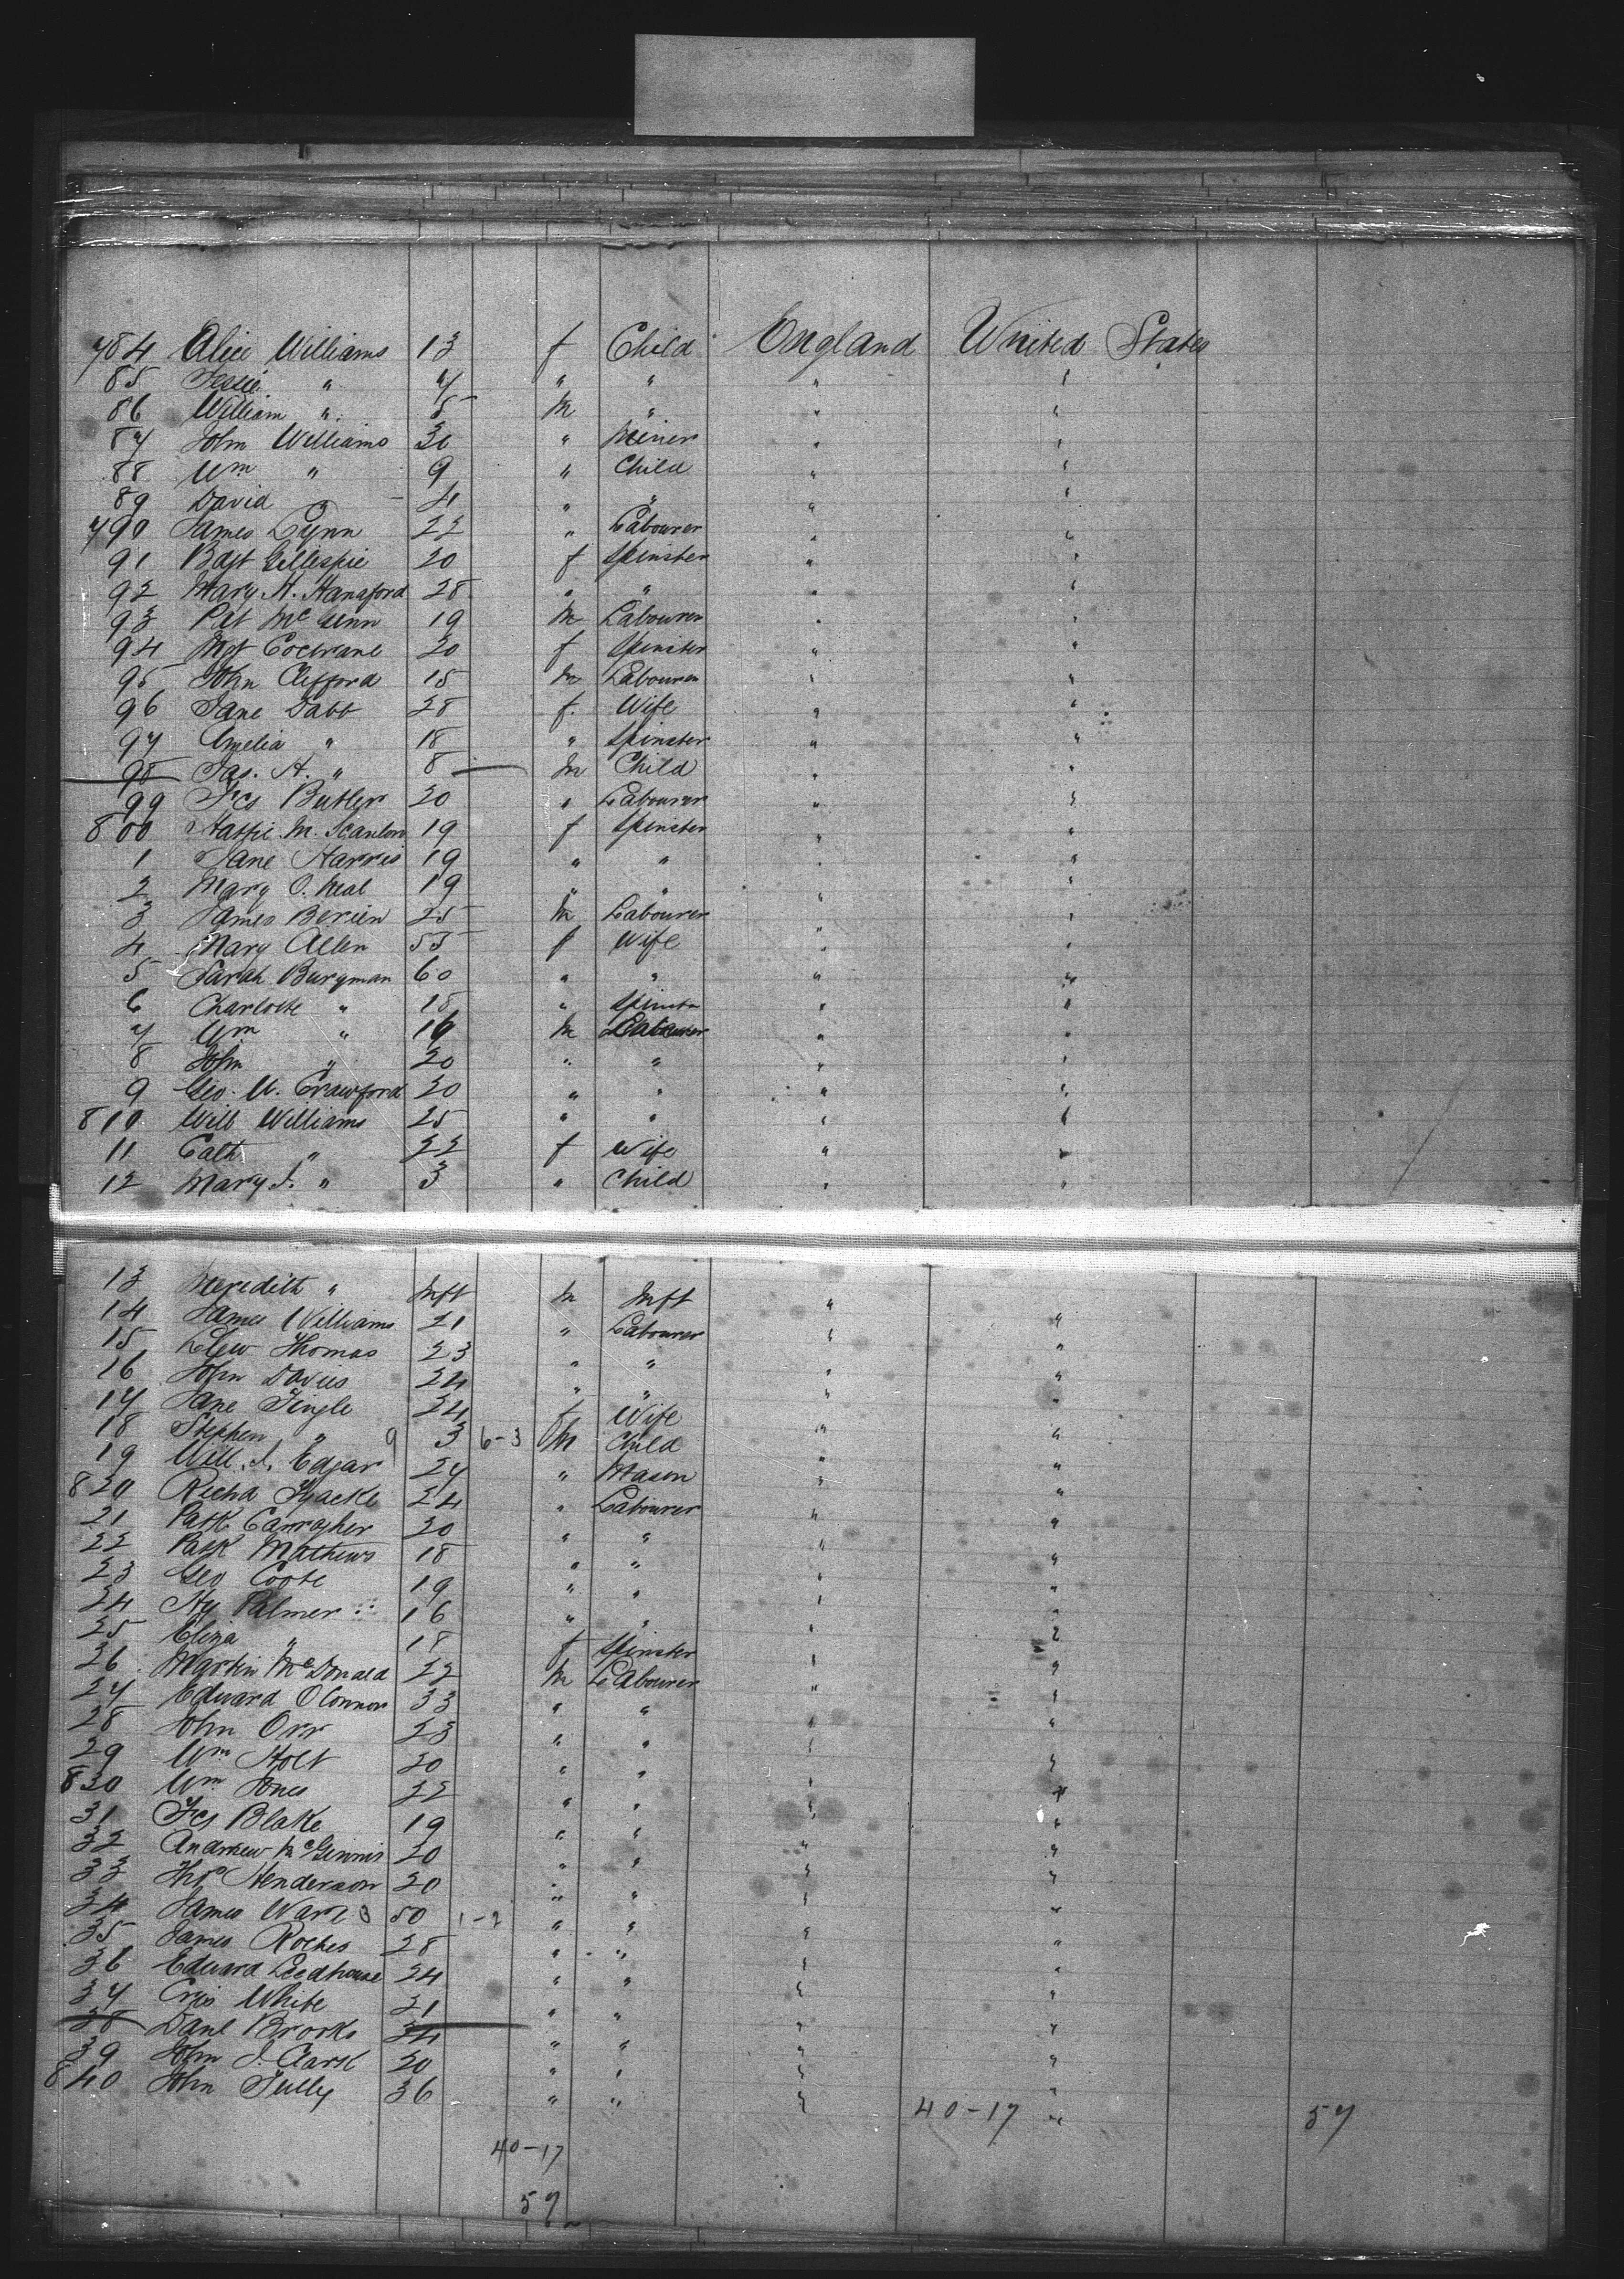 784 Alice Williams 13 f Child England United States
85 Jessie " 7 " " " "
86 William " 5 m " " "
87 John Williams 30 " Miner " "
88 Wm " 9 " Child " "
89 David " 4 " " " "
790 James Lynn 22 " Labourer " "
91 Bdgt Gillespie 20 f Spinster " "
92 Mary H. Hansford 28 " " " "
93 Pat McGinn 19 m Labourer " "
94 Mgt Cochrane 20 f Spinster " "
95 John Clifford 15 m Labourer " "
96 Jane Dabb 28 f. Wife " "
97 Amelia " 18 " Spinster " "
98 Jas. H. " 8 m Child " "
99 Fcs Butler 20 " Labourer " "
800 Hattie M. Scanlon 19 f Spinster " "
1 Jane Harris 19 " " " "
2 Mary O. Neal 19 " " " "
3 James Berien 25 m Labourer " "
4 Mary Allen 55 f Wife " "
5 Sarah Burgman 60 " " " "
6 Charlotte " 18 " Spinstr " "
7 Wm " 16 m Labourer " "
8 John " 20 " " " "
9 Geo. W. Crawford 20 " " " "
810 Will Williams 25 " " " "
11 Cath " 22 f Wife " "
12 Mary J. " 3 " Child " "
13 Meredith " Inft m Inft " "
14 James Williams 21 " Labourer " "
15 Llew Thomas 23 " " " "
16 John Davies 24 " " " "
17 Jane Tingle 24 f Wife " "
18 Stephen " 9 3 6-3 m Child " "
19 Will. J. Edgar 27 " Mason " "
820 Richd Tyacke 24 " Labourer " "
21 Patk Carragher 20 " " " "
22 Patk Mathews 18 " " " "
23 Geo Coote 19 " " " "
24 Hy Palmer 16 " " " "
25 Eliza " 18 f Spinster " "
26 Martin McDonald 22 m Labourer " "
27 Edward OConnor 33 " " " "
28 John Orr 23 " " " "
29 Wm Holt 20 " " " "
830 Wm Jones 22 " " " "
31 Fcs Blake 19 " " " "
32 Andrew McGinnis 20 " " " "
33 Thos Henderson 20 " " " "
34 James Ware 3 50 1-2 " " " "
35 James Roches 28 " " " "
36 Edward Leedhouse 24 " " " "
37 Cris White 21 " " " "
38 Danl Brooks 34 " " " "
39 John J. Clark 20 " " " "
840 John Tully 36 " " " 40-17 " 57
40-17
57